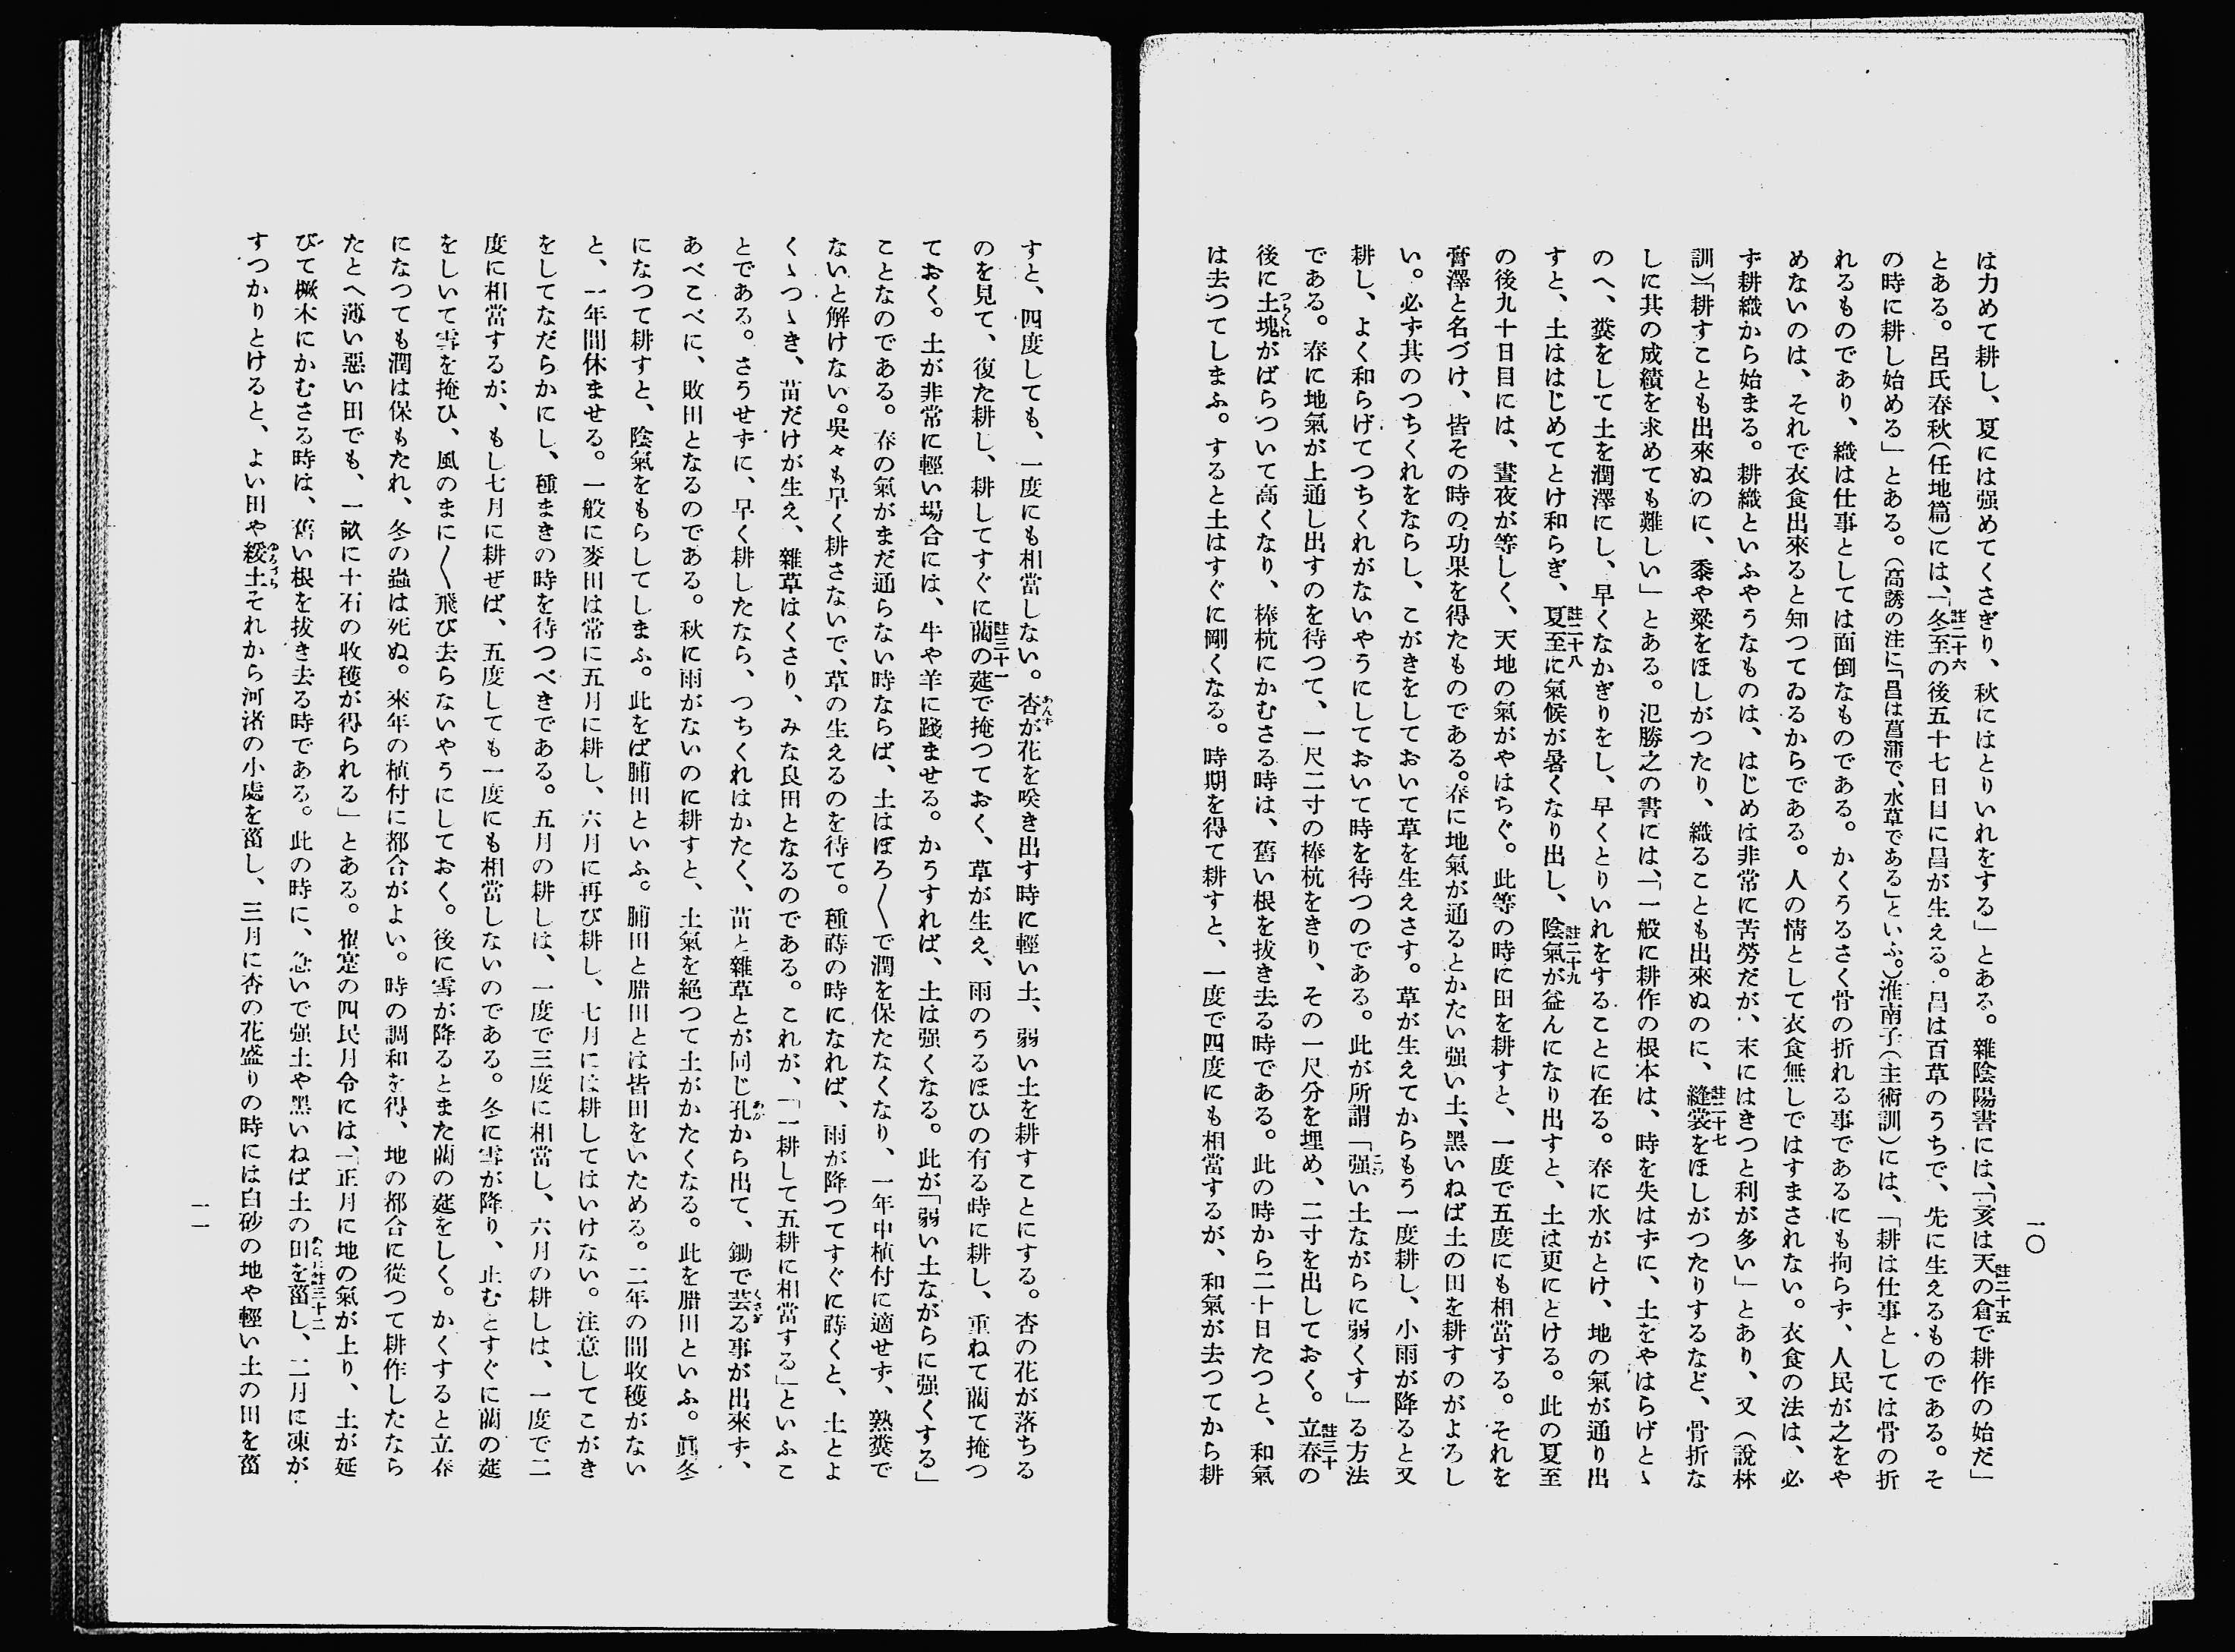 一〇
は力めて耕し、夏には强めてくさぎり、秋にはとりいれをする」とある。雜陰陽書には、「亥は天の倉で耕作の始だ」
註二十五
とある。呂氏春秋(任地篇)には、「冬至の後五十七日目に昌が生える。昌は百草のうちで、先に生えるものである。そ
註二十六
の時に耕し始める」とある。(高誘の注に「昌は菖蒲で、水草である」といふ。)淮南子(主術訓)には、「耕は仕事としては骨の折
れるものであり、織は仕事としては面倒なものである。かくうるさく骨の折れる事であるにも拘らず、人民が之をや
めないのは、それで衣食出來ると知つてゐるからである。人の情として衣食無しではすまされない。衣食の法は、必
ず耕織から始まる。耕織といふやうなものは、はじめは非常に苦勞だが、末にはきつと利が多い」とあり、又(說林
訓)「耕すことも出來ぬのに、黍や粱をほしがつたり、織ることも出來ぬのに、縫裳をほしがつたりするなど、骨折な
註二十七
しに其の成績を求めても難しい」とある。氾勝之の書には、「一般に耕作の根本は、時を失はずに、土をやはらげとゝ
のへ、糞をして土を潤澤にし、早くなかぎりをし、早くとりいれをすることに在る。春に水がとけ、地の氣が通り出
すと、土ははじめてとけ和らぎ、夏至に氣候が暑くなり出し、陰氣が益んになり出すと、土は更にとける。此の夏至
註二十八
註二十九
の後九十日目には、晝夜が等しく、天地の氣がやはらぐ。此等の時に田を耕すと、一度で五度にも相當する。それを
膏澤と名づけ、皆その時の功果を得たものである。春に地氣が通るとかたい强い土、黑いねば土の田を耕すのがよろし
い。必ず其のつちくれをならし、こがきをしておいて草を生えさす。草が生えてからもう一度耕し、小雨が降ると又
耕し、よく和らげてつちくれがないやうにしておいて時を待つのである。此が所謂「强い土ながらに弱くす」る方法
である。春に地氣が上通し出すのを待つて、一尺二寸の棒杭をきり、その一尺分を埋め、二寸を出しておく。立春の
註三十
後に土塊がばらついて高くなり、棒杭にかむさる時は、舊い根を拔き去る時である。此の時から二十日たつと、和氣
つちくれ
は去つてしまふ。すると土はすぐに剛くなる。時期を得て耕すと、一度で四度にも相當するが、和氣が去つてから耕
すと、四度しても、一度にも相當しない。杏が花を咲き出す時に輕い土、弱い土を耕すことにする。杏の花が落ちる
あんず
のを見て、復た耕し、耕してすぐに藺の莚で掩つておく、草が生え、雨のうるほひの有る時に耕し、重ねて藺て掩つ
註三十一
ておく。土が非常に輕い場合には、牛や羊に踐ませる。かうすれば、土は强くなる。此が「弱い土ながらに强くする」
ことなのである。春の氣がまだ通らない時ならば、土はぼろ〱で潤を保たなくなり、一年中植付に適せず、熟糞で
ないと解けない。吳々も早く耕さないで、草の生えるのを待て。種蒔の時になれば、雨が降つてすぐに蒔くと、土とよ
くゝつゝき、苗だけが生え、雜草はくさり、みな良田となるのである。これが、「一耕して五耕に相當する」といふこ
とである。さうせずに、早く耕したなら、つちくれはかたく、苗と雜草とが同じ孔から出て、鋤で芸る事が出來ず、
あな
くさぎ
あべこべに、敗田となるのである。秋に雨がないのに耕すと、土氣を絶つて土がかたくなる。此を腊田といふ。眞冬
になつて耕すと、陰氣をもらしてしまふ。此をば脯田といふ。脯田と腊田とは皆田をいためる。二年の間收穫がない
と、一年間休ませる。一般に麥田は常に五月に耕し、六月に再び耕し、七月には耕してはいけない。注意してこがき
をしてなだらかにし、種まきの時を待つべきである。五月の耕しは、一度で三度に相當し、六月の耕しは、一度で二
度に相當するが、もし七月に耕ぜば、五度しても一度にも相當しないのである。冬に雪が降り、止むとすぐに藺の莚
をしいて雪を掩ひ、風のまに〱飛び去らないやうにしておく。後に雪が降るとまた藺の莚をしく。かくすると立春
になつても潤は保もたれ、冬の蟲は死ぬ。來年の植付に都合がよい。時の調和を得、地の都合に從つて耕作したなら
たとへ薄い惡い田でも、一畝に十石の收穫が得られる」とある。崔寔の四民月令には、「正月に地の氣が上り、土が延
びて橛木にかむさる時は、舊い根を拔き去る時である。此の時に、急いで强土や黑いねば土の田を菑し、二月に凍が
註三十二
すつかりとけると、よい田や緩土それから河渚の小處を菑し、三月に杏の花盛りの時には白砂の地や輕い土の田を菑
一一